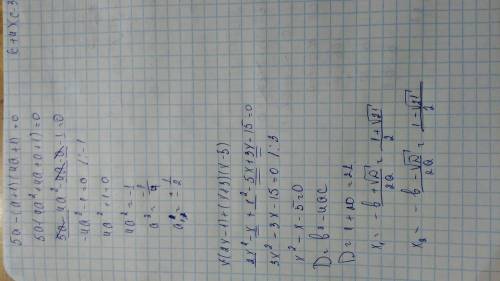 5a-(a+1)(4a+1)=0
5a+4a²+4a+a+1)=0
5a-4a²-4a-a-1=0
-4a²-1=0 /:-1
4a²-1=0
4a²=-1
a²=-1/4
a₁,₂=±1/2
x(2x-1)+(x+3)(x-5)
2x²-x+x²-5x+3x-15=0
3x²-3x-15=0 /:3
x²-x-5=0
D=b²-4ac
D=1+20=21
x₁=-b+√D/2a=1+√21/2
x₂=-b-√D/2a=1-√21/2